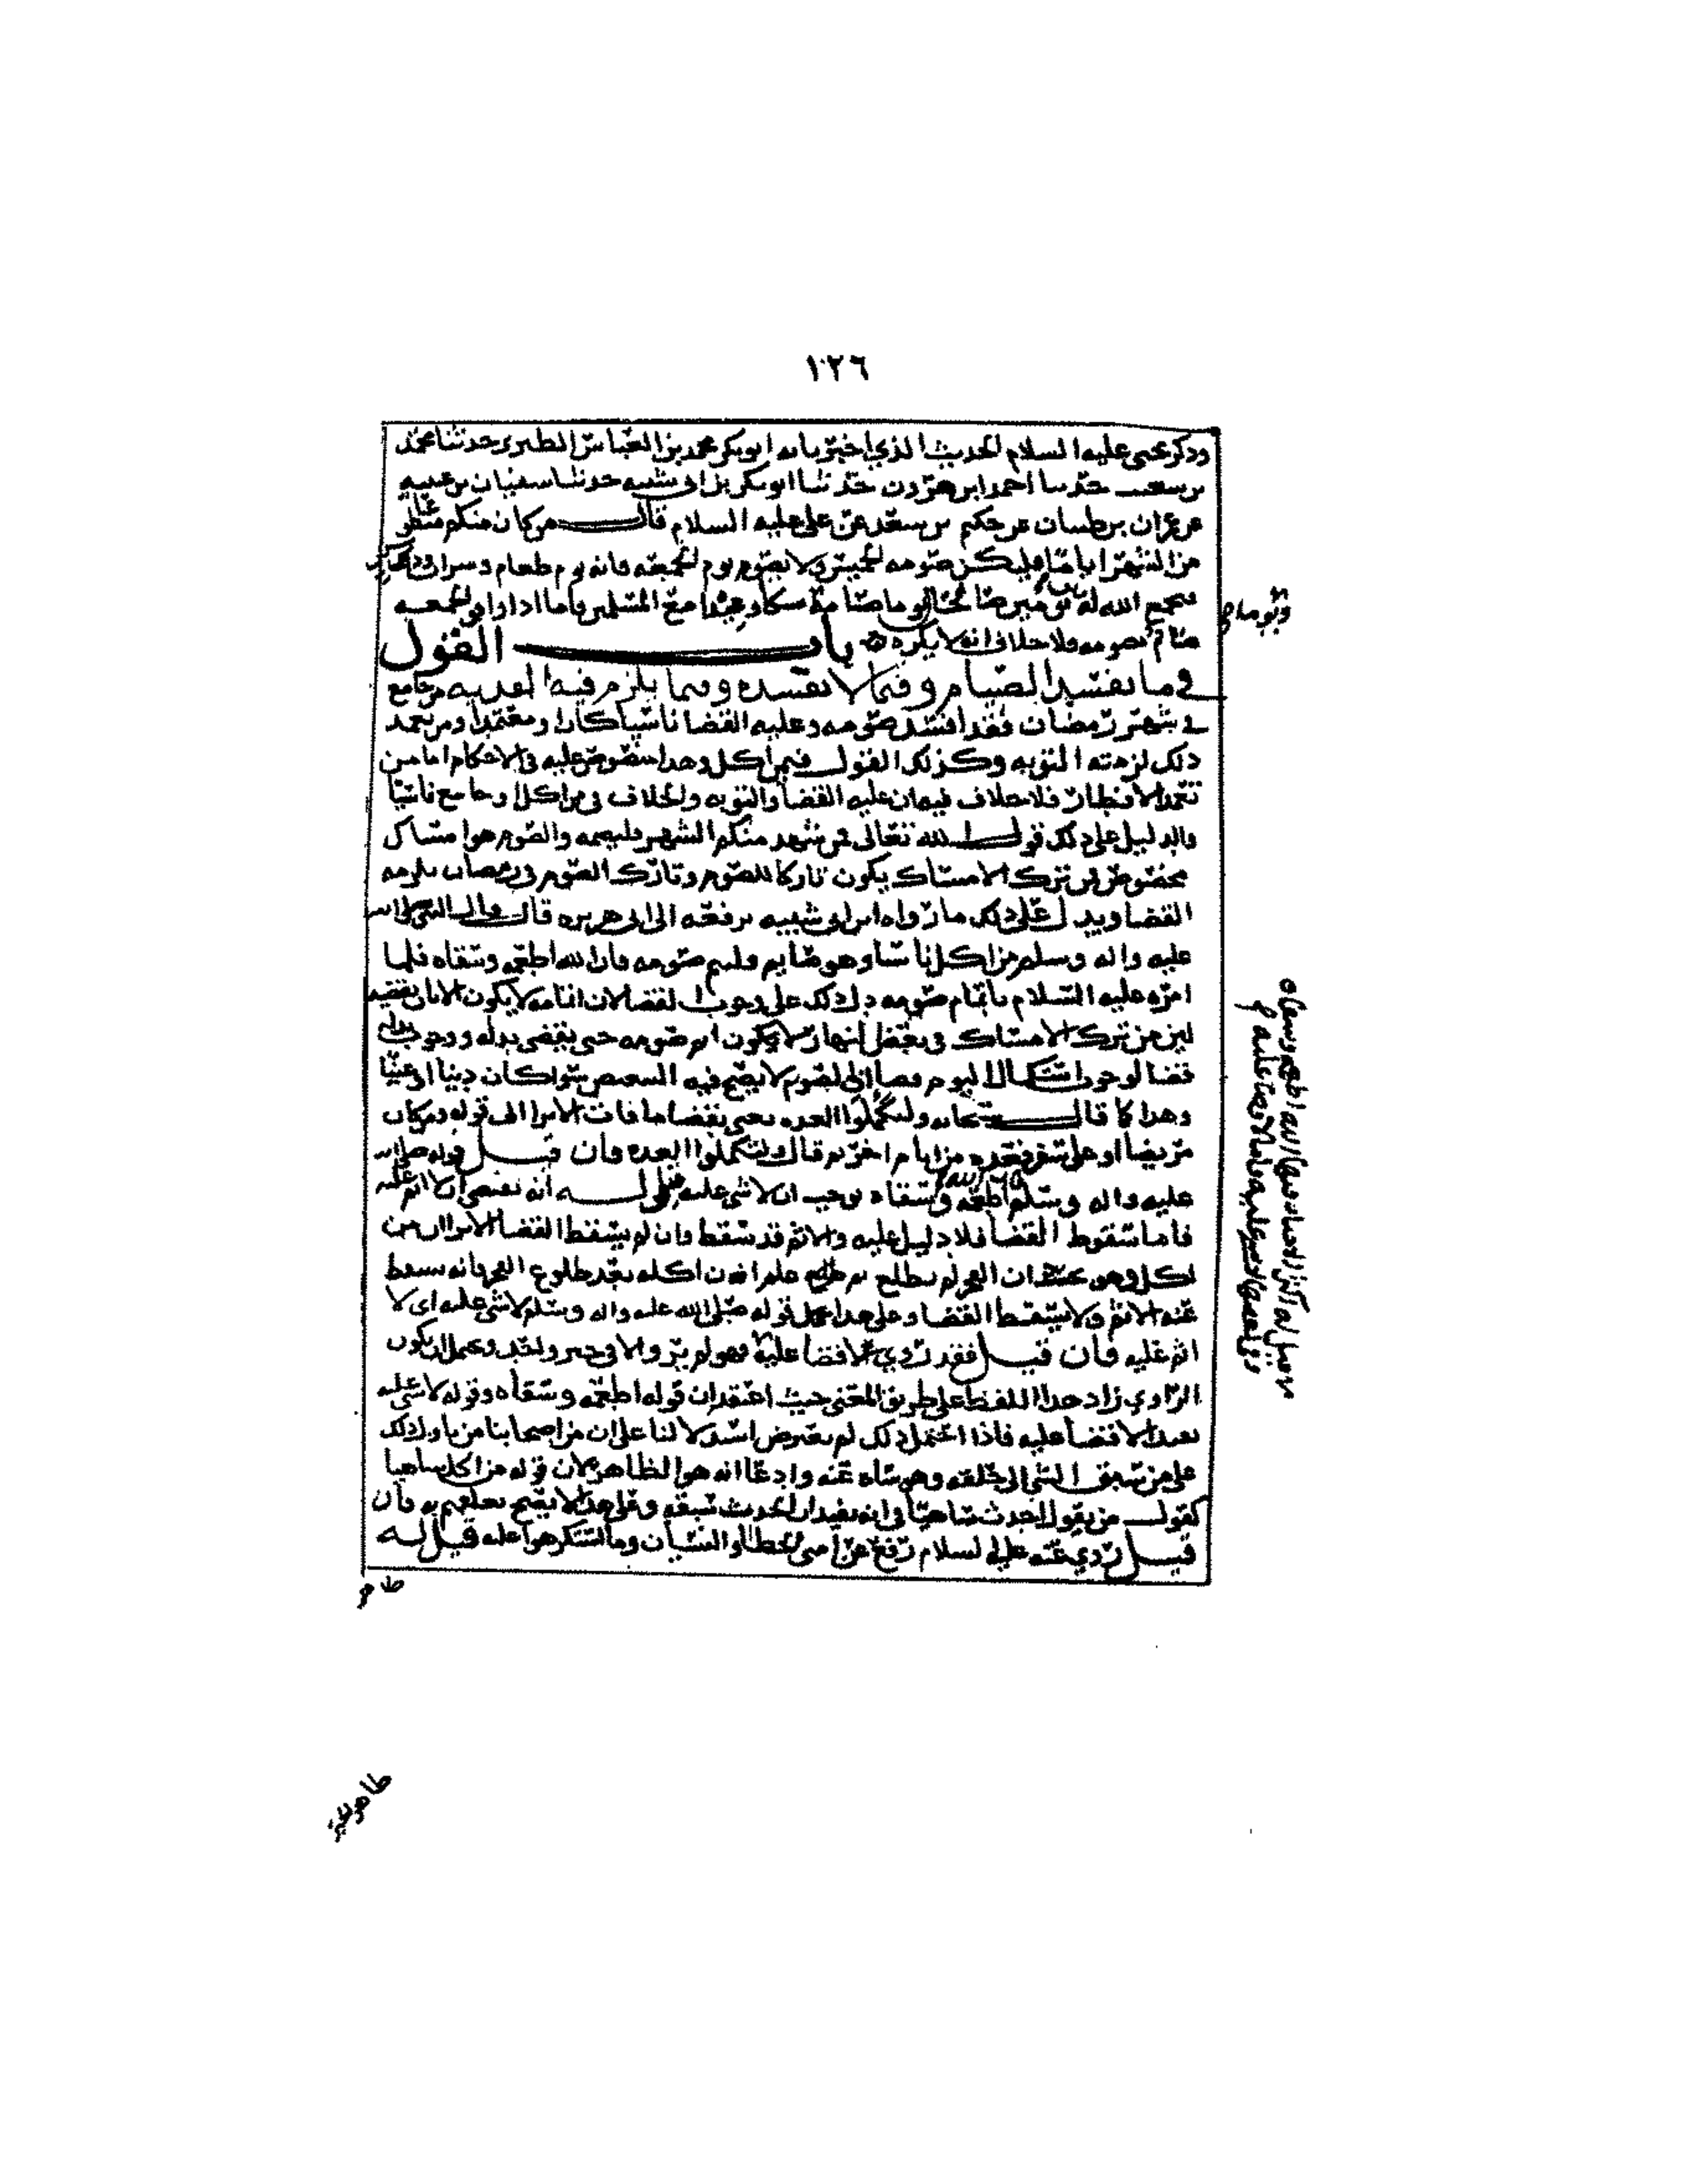 ١٢٦
وذكر يحيى عليه السلام الحديث الذي اخبرنا به ابو بكر محمد بن العباس الطبري حدثنا محمد
بن شعيب حدثنا احمد ابن هرون حدثنا ابو بكر بن ابي شيبه حدثنا سفيان بن عيينه
عن عمران بن ظبيان عن حكيم بن سعد عن علي عليه السلام قال من كان منكم متطوعا
من الشهر اياما فليكن صومه الخميس ولا يصوم يوم الجمعه فانه يوم طعام وشراب وذكر
فيجمع الله له يومين صالحين يوما صيامه ونسكا وعيدا مع المسلمين فاما اذا وافق الجمعه
ويوما
صيام يصومه فلا خلاف انه لا يكره باب القول
في ما يفسد الصيام وفيما لا يفسده وفيما يلزم فيه الفديه من جامع
في شهر رمضان فقد افسد صومه وعليه القضا ناسيا كان او متعمدا ومن تعمد
ذلك لزمته التوبه وكذلك القول فيمن اكل وهذا منصوص عليه في الاحكام اما من
تعمد الافطار فلا خلاف فيه ان عليه القضا والتوبه والخلاف في من اكل او جامع ناسيا
والدليل على ذلك قول الله تعالى فمن شهد منكم الشهر فليصمه والصوم هو امساك
مخصوص فمن ترك الامساك يكون تاركا للصوم وتارك الصوم في رمضان يلزمه
القضا ويدل على ذلك ما رواه ابن ابي شيبه يرفعه الى ابي هريره قال قال النبي صلى الله
عليه واله وسلم من اكل ناسيا وهو صايم فليتم صومه فان الله اطعمه وسقاه فلما
امره عليه السلام باتمام صومه دل ذلك على وجوب القضا لان اتمامه لا يكون الا بان يقضيه
لان من ترك الامساك في بعض النهار لا يكون اتم صومه حتى يقضي بدله ووجوب
قضا لوجود استكمال اليوم لان الصوم لا يصح فيه التبعيض سواء كان دينا او عينا
وهذا كما قال سبحانه ولتكملوا العده يعني بقضا ما فات الا ترا الى قوله ومن كان
مريضا او على سفر فعده من ايام اخر ثم قال ولتكملوا العده فان قيل قوله صلى الله
عليه واله وسلم اطعمه الله وسقاه يوجب ان لا شي عليه قيل له انه يقتضي ان لا اثم عليه
فاما سقوط القضا فلا دليل عليه والاثم قد سقط وان لم يسقط القضا الا ترا ان من
اكل وهو عنده ان الفجر لم يطلع ثم علم ان اكله بعد طلوع الفجر فانه يسقط
عنه الاثم ولا يسقط القضا وعلى هذا يحمل قوله صلى الله عليه واله وسلم لا شي عليه اي لا
اثم عليه فان قيل فقد روي لا قضا عليه فهو لم يرو الا في خبر واحد ويحتمل ان يكون
الراوي زاد هذا اللفظ على طريق المعنى حيث اعتقد ان قوله اطعمه وسقاه وقوله لا شي عليه
يفيد الا قضا عليه فاذا احتمل ذلك لم يعترض استدلالنا على ان من اصحابنا من تاول ذلك
على من سبق الشي الى حلقه وهو ساه عنه وادعا انه هو الظاهر لان قوله من اكل ساهيا
كقول من يقول احدث ساهيا في انه يفيد ان الحدث سبقه وعلى هذا لا يصح تعلقهم به فان
قيل روي عنه عليه السلام رفع عن امتي الخطا والنسيان وما استكرهوا عليه قيل له